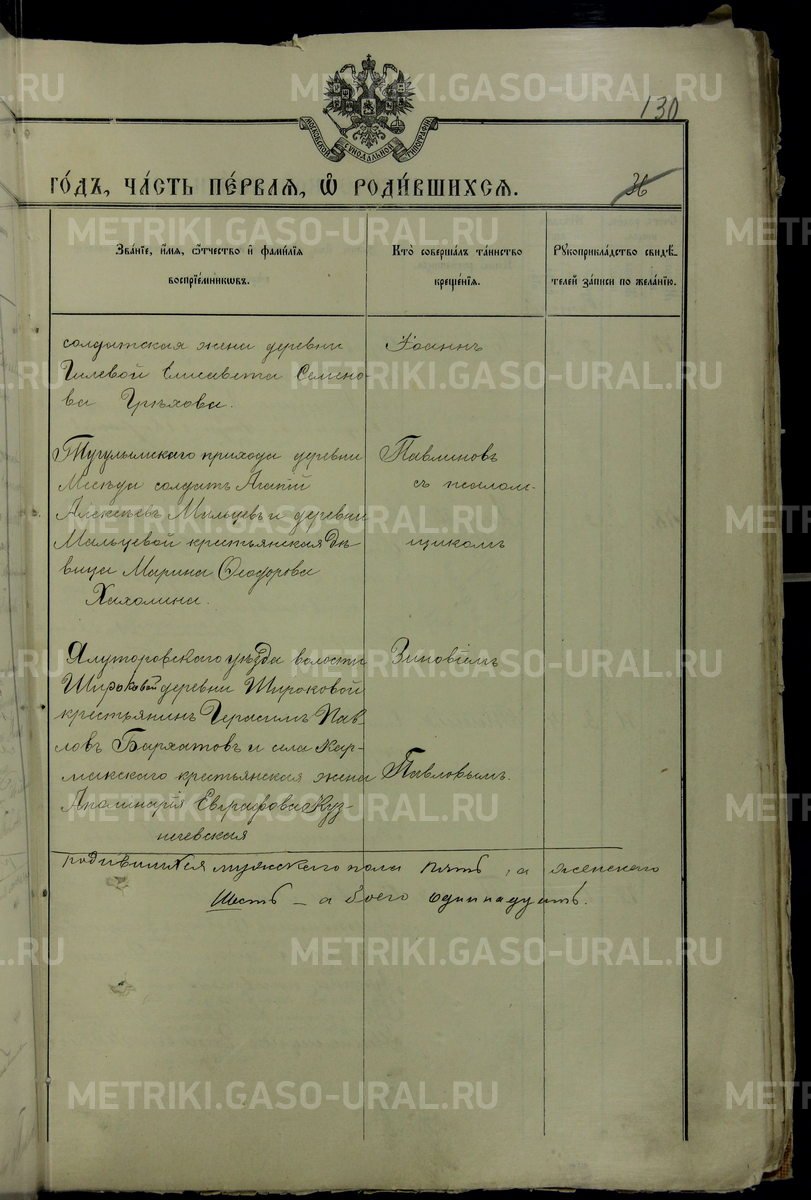 130
МОСКОВСКОЙ СѴНОДАЛЬНОЙ ТИПОГРАФІИ
ГО́ДЪ, ЧА́СТЬ ПЕ́РВАѦ, Ѡ҆ РОДИ́ВШИХСѦ.
Зва́нїе, и҆́мѧ, ѻ҆́тчество и҆ фами́лїѧ
воспрїе́мникѡвъ.
Кто̀ соверша́лъ та́инство
креще́нїѧ.
Рꙋкоприкла́дство свидѣ́-
телей за́писи по жела́нїю.
солдатская жена деревни
Гилевой Елисавета Семено-
ва Грѣхова.
Іоаннъ
Тугулымскаго прихода деревни
солдатъ Агапій
Алексѣевъ Мальцевъ и деревни
Мальцевой крестьянская дѣ-
вица Марина Ѳеодорова
Хахалина.
Павлиновъ
съ псалом-
щикомъ
Ялуторовскаго уѣзда волости
Широковой деревни Широковой
крестьянинъ Герасимъ Пав-
ловъ Бархатовъ и села Кар-
макскаго крестьянская жена
Аполинарія Евграфова Куз-
нечевская
Зиновіемъ
Павловымъ.
родившихся мужскаго пола пять, а женскаго
шесть – а обоего одинадцать.
METRIKI.GASO-URAL.RU